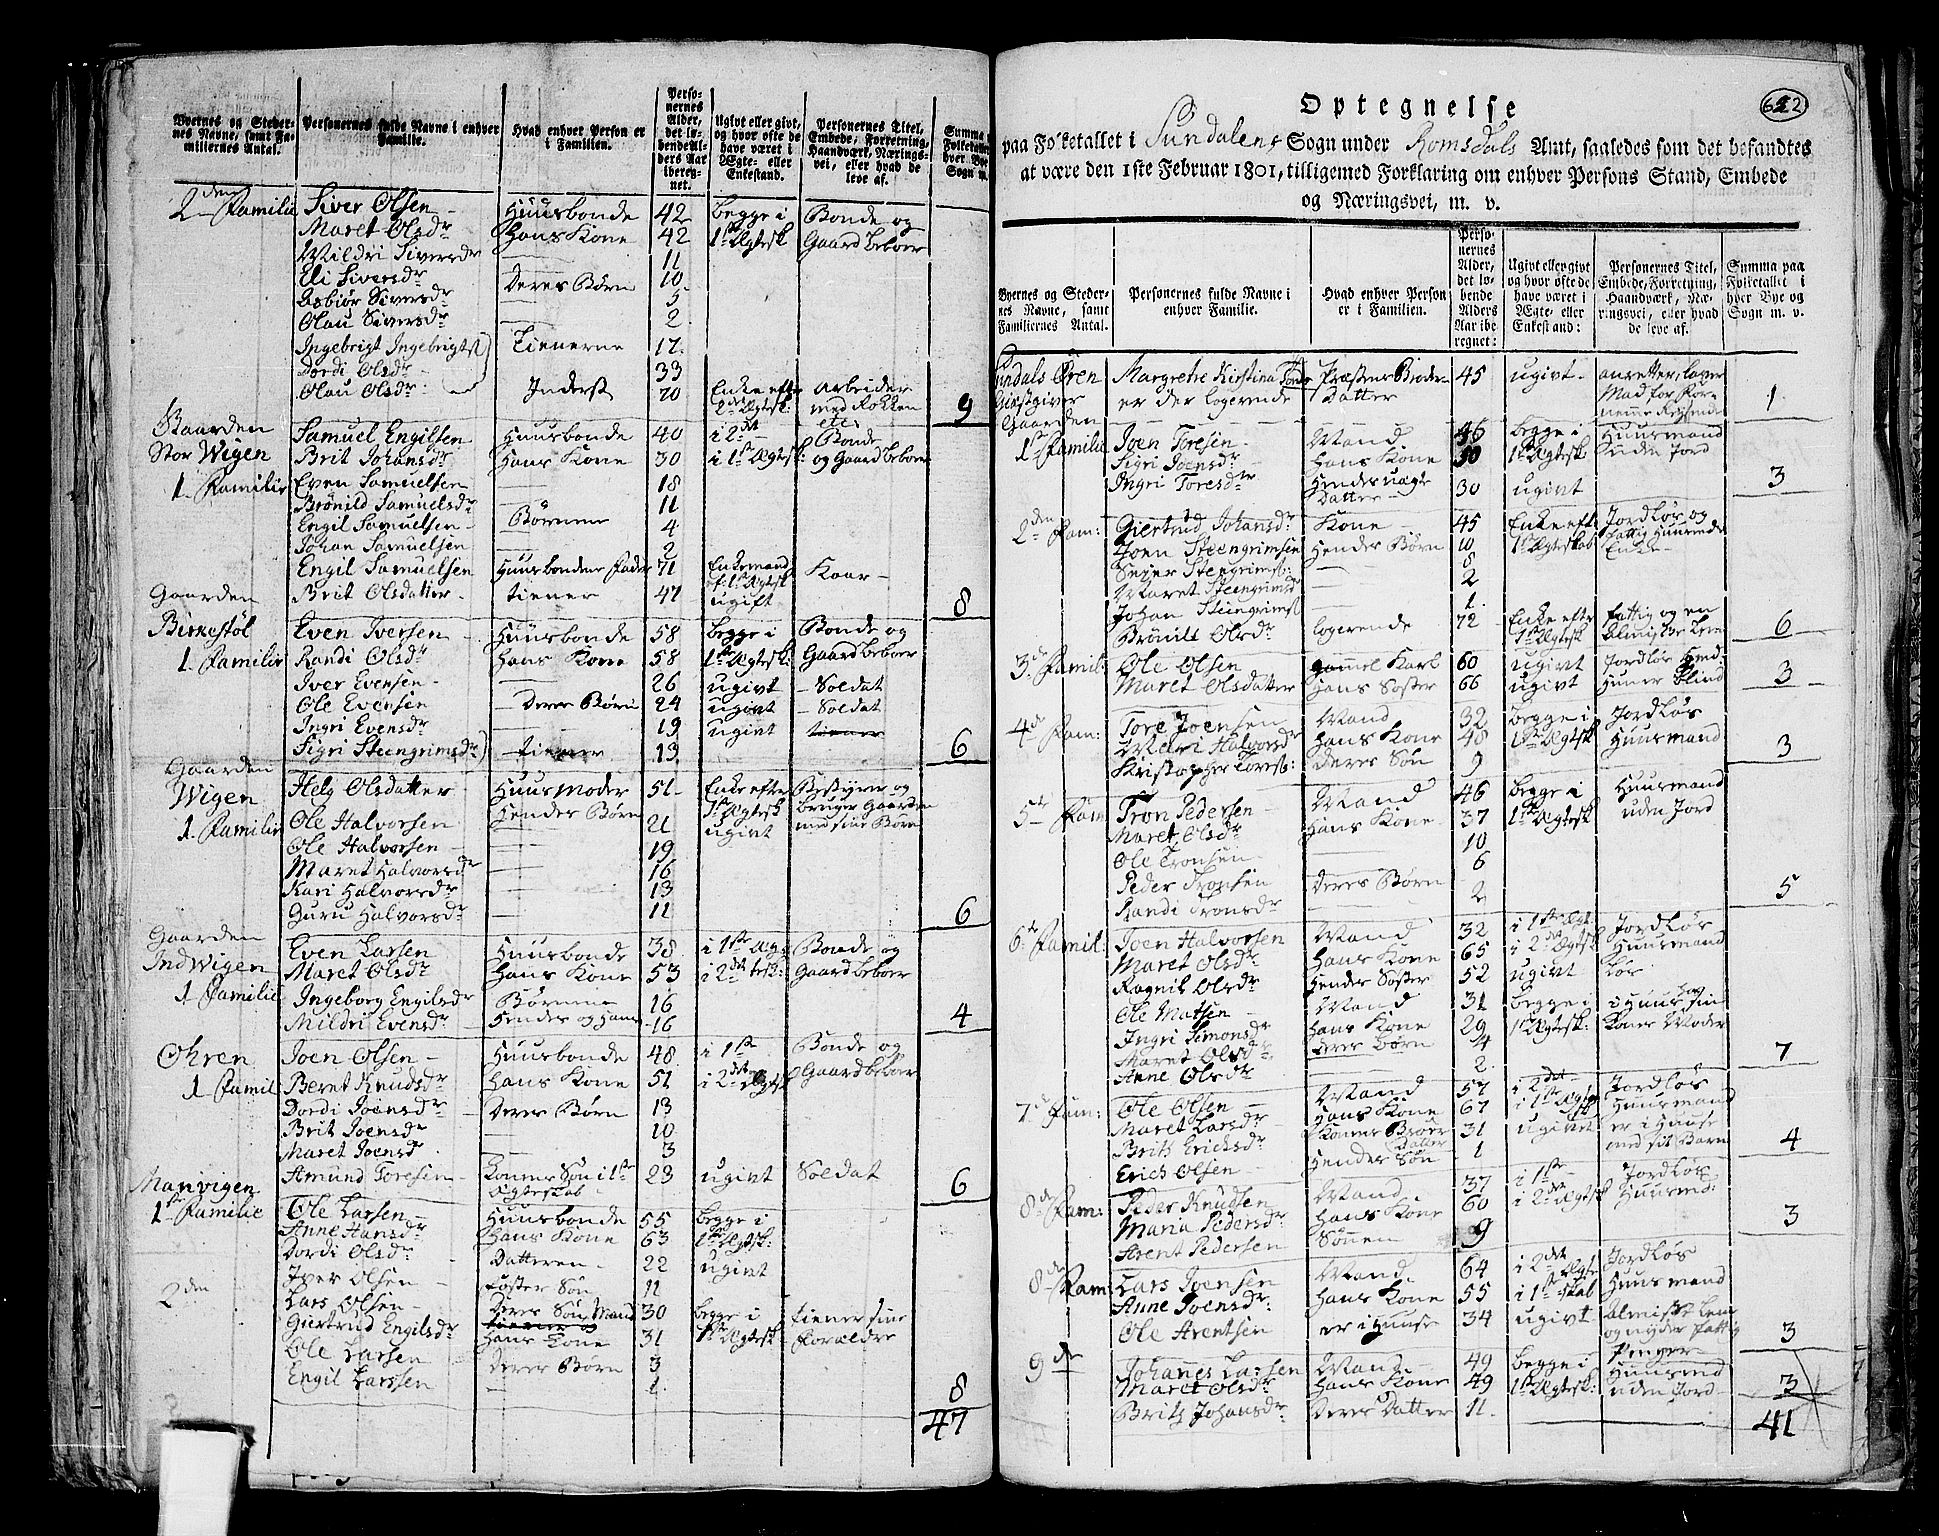 Byernes og Steder-
nes Navne, samt Fa-
miliernes Antal.
Personernes fulde Navne i enhver
Familie.
Hvad enhver Person er
i Familien.
Perso-
nernes
Alder,
det lø-
bende Al-
ders Aar
iberegnet.
Ugivt eller givt,
og hvor ofte de
have været i
Ægte- eller
Enkestand.
Personernes Titel,
Embede, Forretning,
Haandværk, Nærings-
vei, eller hvad de
leve af.
Summa
Folketallet
hver Bye
Sogn m.
2den Familie Siver Olsen Huusbonde 42 begge i Bonde og
Maret Olsdr hans Kone 42 1ste Ægtesk Gaardbeboer
Mildri Siversdr 11
Eli Siversdr Deres Børn 10
Asbiør Siversdr 5
Olau Siversdr 2
Ingebrigt Ingebrigts Tienerne 17
Dordi Olsdr 33
Olau Olsdr Inderst 70 Enke efter 2det Ægtesk: Arbeider med Rokken etc 9
Gaarden
Stor Wigen Samuel Engilsen Huusbonde 40 i 2det Bonde
Brit Johansdr Hans Kone 30 i 1ste Ægtesk: og Gaardbeboer
1. Familie Even Samuelsen 18
Brönild Samuelsdr 11
Engil Samuelsen Børnene 4
Johan Samuelsen 2
Engil Samuelsen Huusbondens Fader 71 Enkemand af 1ste Ægtesk Kaar
Gaarden Brit Olsdatter tiener 47 ugift 8
Birkestøl Even Iversen Huusbonde 58 begge i Bonde og
1. Familie Randi Olsdr hans Kone 58 1ste Ægtesk: Gaardbeboer
Iver Evensen 26 ugivt Soldat
Ole Evensen Deres Børn 24 ugivt Soldat
Ingri Evensdr 19 ugivt tiener
Sigri Steengrimsdr tiener 13 6
Gaarden
Wigen Helg Olsdatter Huusmoder 51 Enke efter 1ste Ægtesk Bestyrer og bruger Gaarden
1. Familie Ole Halvorsen Hendes Børn 21 ugivt med sine Børn
Ole Halvorsen 19
Maret Halvorsdr 16
Kari Halvorsdr 13
Guru Halvorsdr 11 6
Gaarden
Ind Wigen Even Larsen Huusbonde 38 i 1ste Ægt Bonde og
Maret Olsdr hans Kone 53 i 2det tesk: Gaardbeboer
1 Familie Ingeborg Engilsdr Børnene 16
Mildri Evensdr Hendes og Hans 16 4
Ohren Joen Olsen Huusbonde 48 i 1ste Bonde og
1 Famil Beret Knudsdr hans Kone 51 i 2det Ægtesk Gaardbeboer
Dordi Joensdr Deres Børn 13
Brit Joensdr 10
Maret Joensd 3
Amund Toresen Konens Søn i 1ste Ægteskab 23 ugivt Soldat 6
Manvigen
1ste Familie Ole Larsen Huusbonde 55 begge i
Anne Hansdr hans Kone 63 1ste Ægtesk:
Dordi Olsdr Datteren 22 ugivt
Iver Olsen Foster Søn 11
2den Lars Olsen Deres Søn Mand 30 begge i tiener sine
Giertrud Engilsdr Hans Kone 31 1ste Ægtesk Forældre
Ole Larsen Deres Børn 3
Engil Larssen 1 8
47
622
Optegnelse
paa Folketallet i Sundalens Sogn under Romsdals Amt, saaledes som det befandtes
at være den 1ste Februar 1801, tilligemed Forklaring om enhver Persons Stand, Embede
og Næringsvei, m. v.
Byernes og Steder-
nes Navne, samt
Familiernes Antal.
Personernes fulde Navne i
enhver Familie.
Hvad enhver Person
er i Familien.
Perso-
nernes
Alder,
det lø-
bende
Alders
Aar ibe-
regnet:
Ugivt eller givt
og hvor ofte de
have været i
Ægte- eller
Enkestand:
Personernes Titel,
Embede, Forretning,
Haandværk, Næ-
ringsvei, eller hvad
de leve af.
Summa paa
Folketallet i
hver Bye og
Sogn m. v.
Sundals Øren Margrete Kirstina Præstens Broder 45 ugivt anretter, laver
Giæstgiver er der logerende Datter Mad for For-
Gaarden nemme Reysende 1.
1ste Familie Joen Toresen Mand 46 begge i Huusmand
Sigri Joensdr Hans Kone 50 1ste Ægtesk uden Jord
Ingri Toresdr Hendes uægte Datter 30 ugivt 3
2den Fam: Giertrud Johansdr Kone 45 Enke eft Jordløs og
Joen Steengrimsen Hendes Børn 10 1ste Ægteskab fattig Huusmands
Sejer Steengrims: 8 Enke
Maret Steengrimsdr 2
Johan Steengrims 1.
Brönil Olsdr logerende 72 Enke efter 1ste Ægtesk fattig og en 6
3de Famil: Ole Olsen gammel Karl 60 ugivt Jordløs
Maret Olsdatter Hans Søster 66 ugivt Hun er blind 3
4de Fam: Tore Joensen Mand 32 begge i Jordløs
Mari Halvorsdr hans Kone 48 1ste Ægtesk Huusmand
Kristopher Tores: Deres Søn 9 3
5te Fam Tron Pedersen Mand 46 begge i Huusmand
Maret Olsdr Hans Kone 37 1ste Ægtesk: uden Jord
Ole Tronsen 10
Peder Tronsen Deres Børn 6
Randi Tronsdr 2 5
6te Famil: Joen Halvorsen Mand 32 i 1ste Ægt: Jordløs
Maret Olsdr hans Kone 65 i 2det Ægtesk Huusmand
Ragnil Olsdr Hendes Søster 52 ugivt løs
Ole Matsen Mand 31 begge i i Huus hos sin
Ingri Simonsdr hans Kone 29 1ste Ægtesk: Kones Moder
Maret Olsdr deres børn 4
Anne Olsdr 2 7
7de Fam: Ole Olsen Mand 57 i 2det Jordløs
Maret Larsdr Hans Kone 67 i 1ste Ægtesk Huusmand
Brits Ericksdr Konens Broder Datter 31 ugivt er i Huuse
Erich Olsen Hendes Søn 1 med sit Barn 4
8de Fam: Peder Knudsen Mand 37 i 1ste Jordløs
Maria Pedersdr hans Kone 60 i 2det Ægtesk Huusmd:
Arent Pedersen Sønnen 9 3
8de Fam: Lars Joensen Mand 64 i 2det Ægte Jordløs
Anne Joensdr: hans Kone 55 i 1ste skab Huusmand
Ole Arentsen er i Huuse 34 ugivt og nyder fattig Penger 3
9de Johanes Larsen Mand 49 begge i Huusmd
Maret Olsdr hans Kone 49 1ste Ægtesk: uden Jord 3
Brits Johansdr: Deres Datter 11.
41